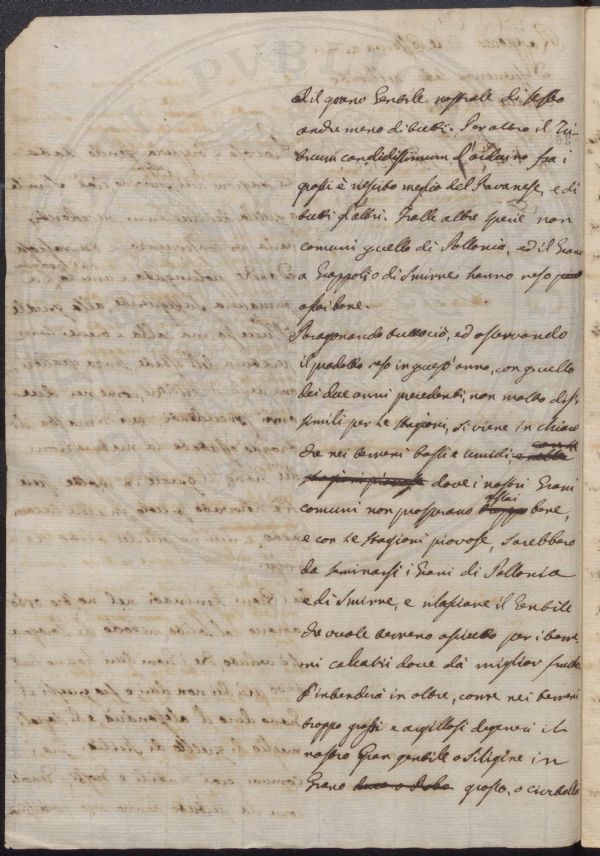 ed il grano Gentile nostrale di sesto
anche meno di tutti. Per altro il Tri-
ticum candidissimum d'arduino fra i
grossi è riescito meglio del Pavanese, e di
tutti gl'altri. Fralle altre specie non
comuni quello di Pollonia, ed il Grano
a Grappoli o di Smirne hanno reso
assai bene.
Paragonando tuttociò, ed osservando
il prodotto reso in quest'anno, con quello
dei due anni precedenti, non molto dis-
simili per le stagioni, si viene in chiaro
che nei terreni bassi e umidi, con le
stagioni piovose dove i nostri Grani
comuni non prosperano assai troppo bene,
e con le stagioni piovose, sarebbero
da seminarsi i Grani di Pollonia
e di Smirne, e rilasciare il Gentile
che vuole terreno asciutto per i terre-
ni calcarei dove dà miglior frutto.
S'intenderà in oltre, come nei terreni
troppo grossi e argillosi degeneri il
nostro Gran gentile o Siligine in
Grano duro o grosso, o civitella